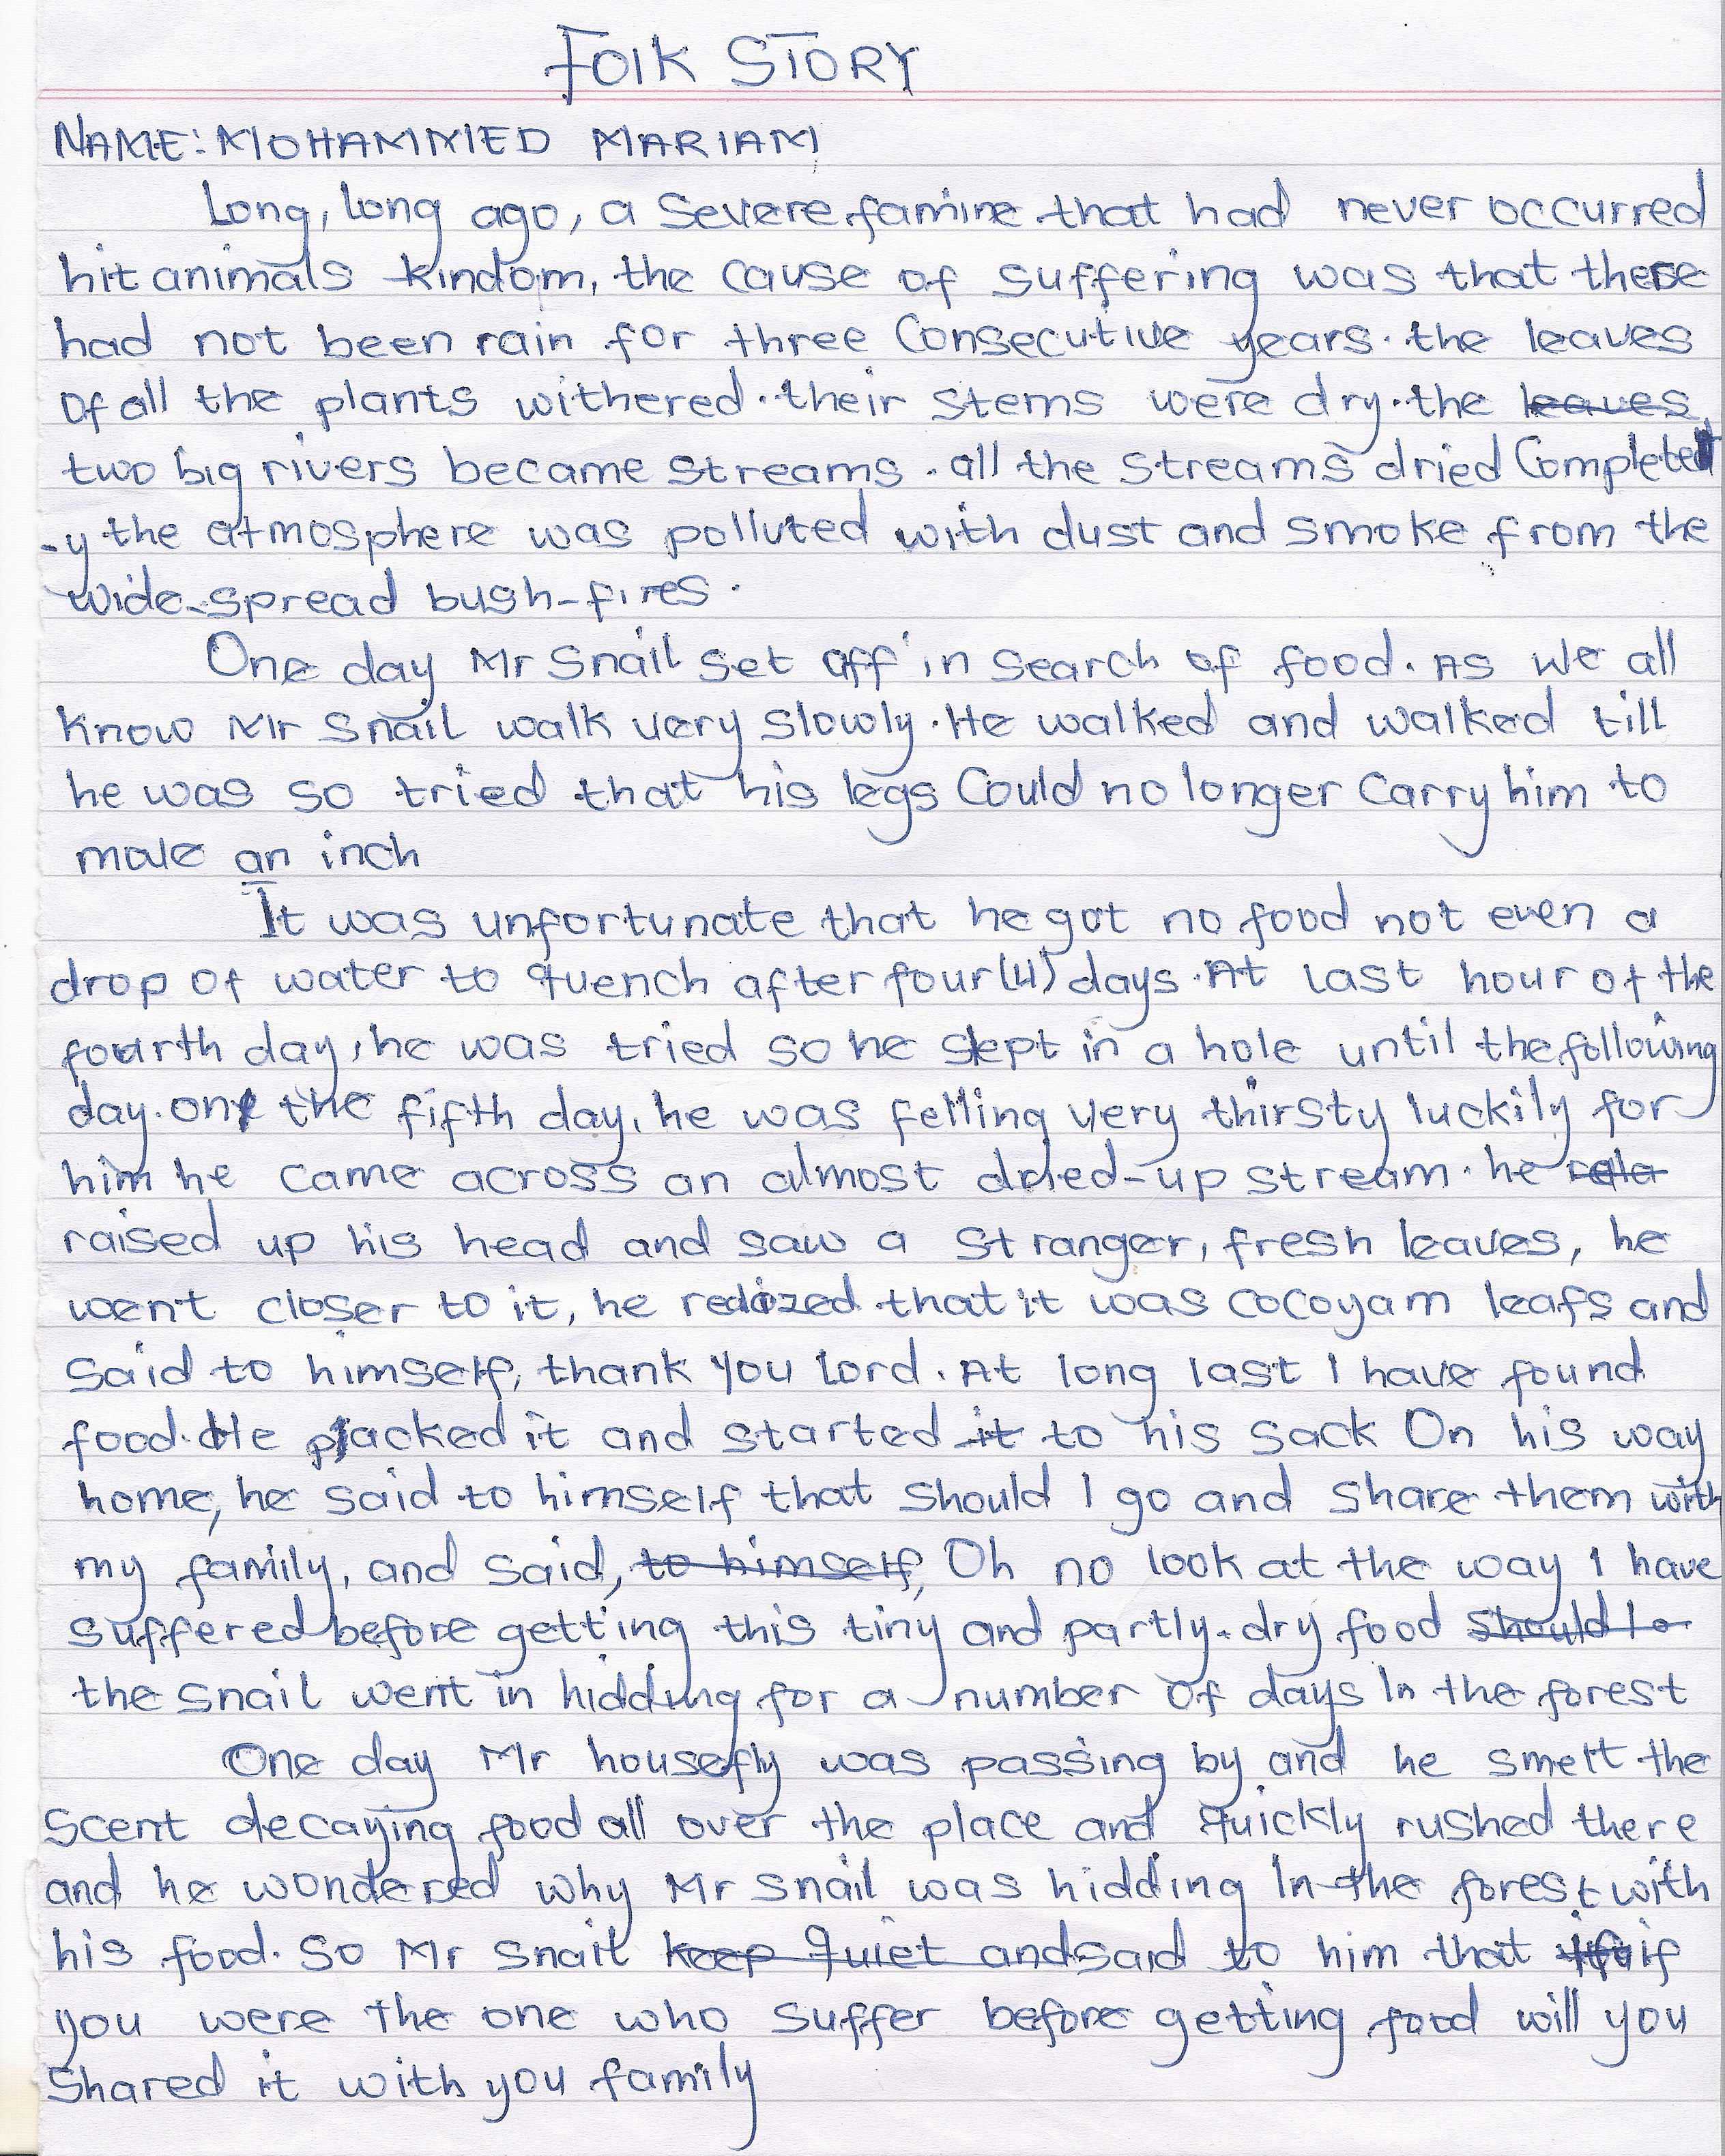 Folk STORY
NAME: MOHAMMED MARIAM
Long, long ago, a severe famine that had never occurred
hit animals kindom, the cause of suffering was that there
had not been rain for three Consecutive years. the leaves
Of all the plants withered. their stems were dry. the leaves
two big rivers became streams. all the streams dried Complete
-y the atmosphere was polluted with dust and smoke from the
wide-spread bush-fires.
One day Mr Snail set off in search of food. As we all
know Mr Snail walk very slowly. He walked and walked till
he was so tried that his legs Could no longer Carry him to
move an inch
It was unfortunate that he got no food not even a
drop of water to quench after four (4) days. At last hour of the
fourth day, he was tried so he slept in a hole until the following
day. one the fifth day, he was felling very thirsty luckily for
him he came across an almost dried-up stream. he
raised up his head and saw a stranger, fresh leaves, he
went closer to it, he realized that it was cocoyam leafs and
said to himself, thank you lord. At long last I have found
food. He packed it and started it to his sack On his way
home, he said to himself that should I go and share them with
my family, and said, to himself, Oh no look at the way I have
suffered before getting this tiny and partly-dry food should I
the snail went in hidding for a number Of days In the forest
One day Mr housefly was passing by and he smelt the
scent decaying food all over the place and quickly rushed there
and he wondered why Mr snail was hidding In the forest with
his food. So Mr snail keep quiet and said to him that if
you were the one who suffer before getting food will you
Shared it with you family